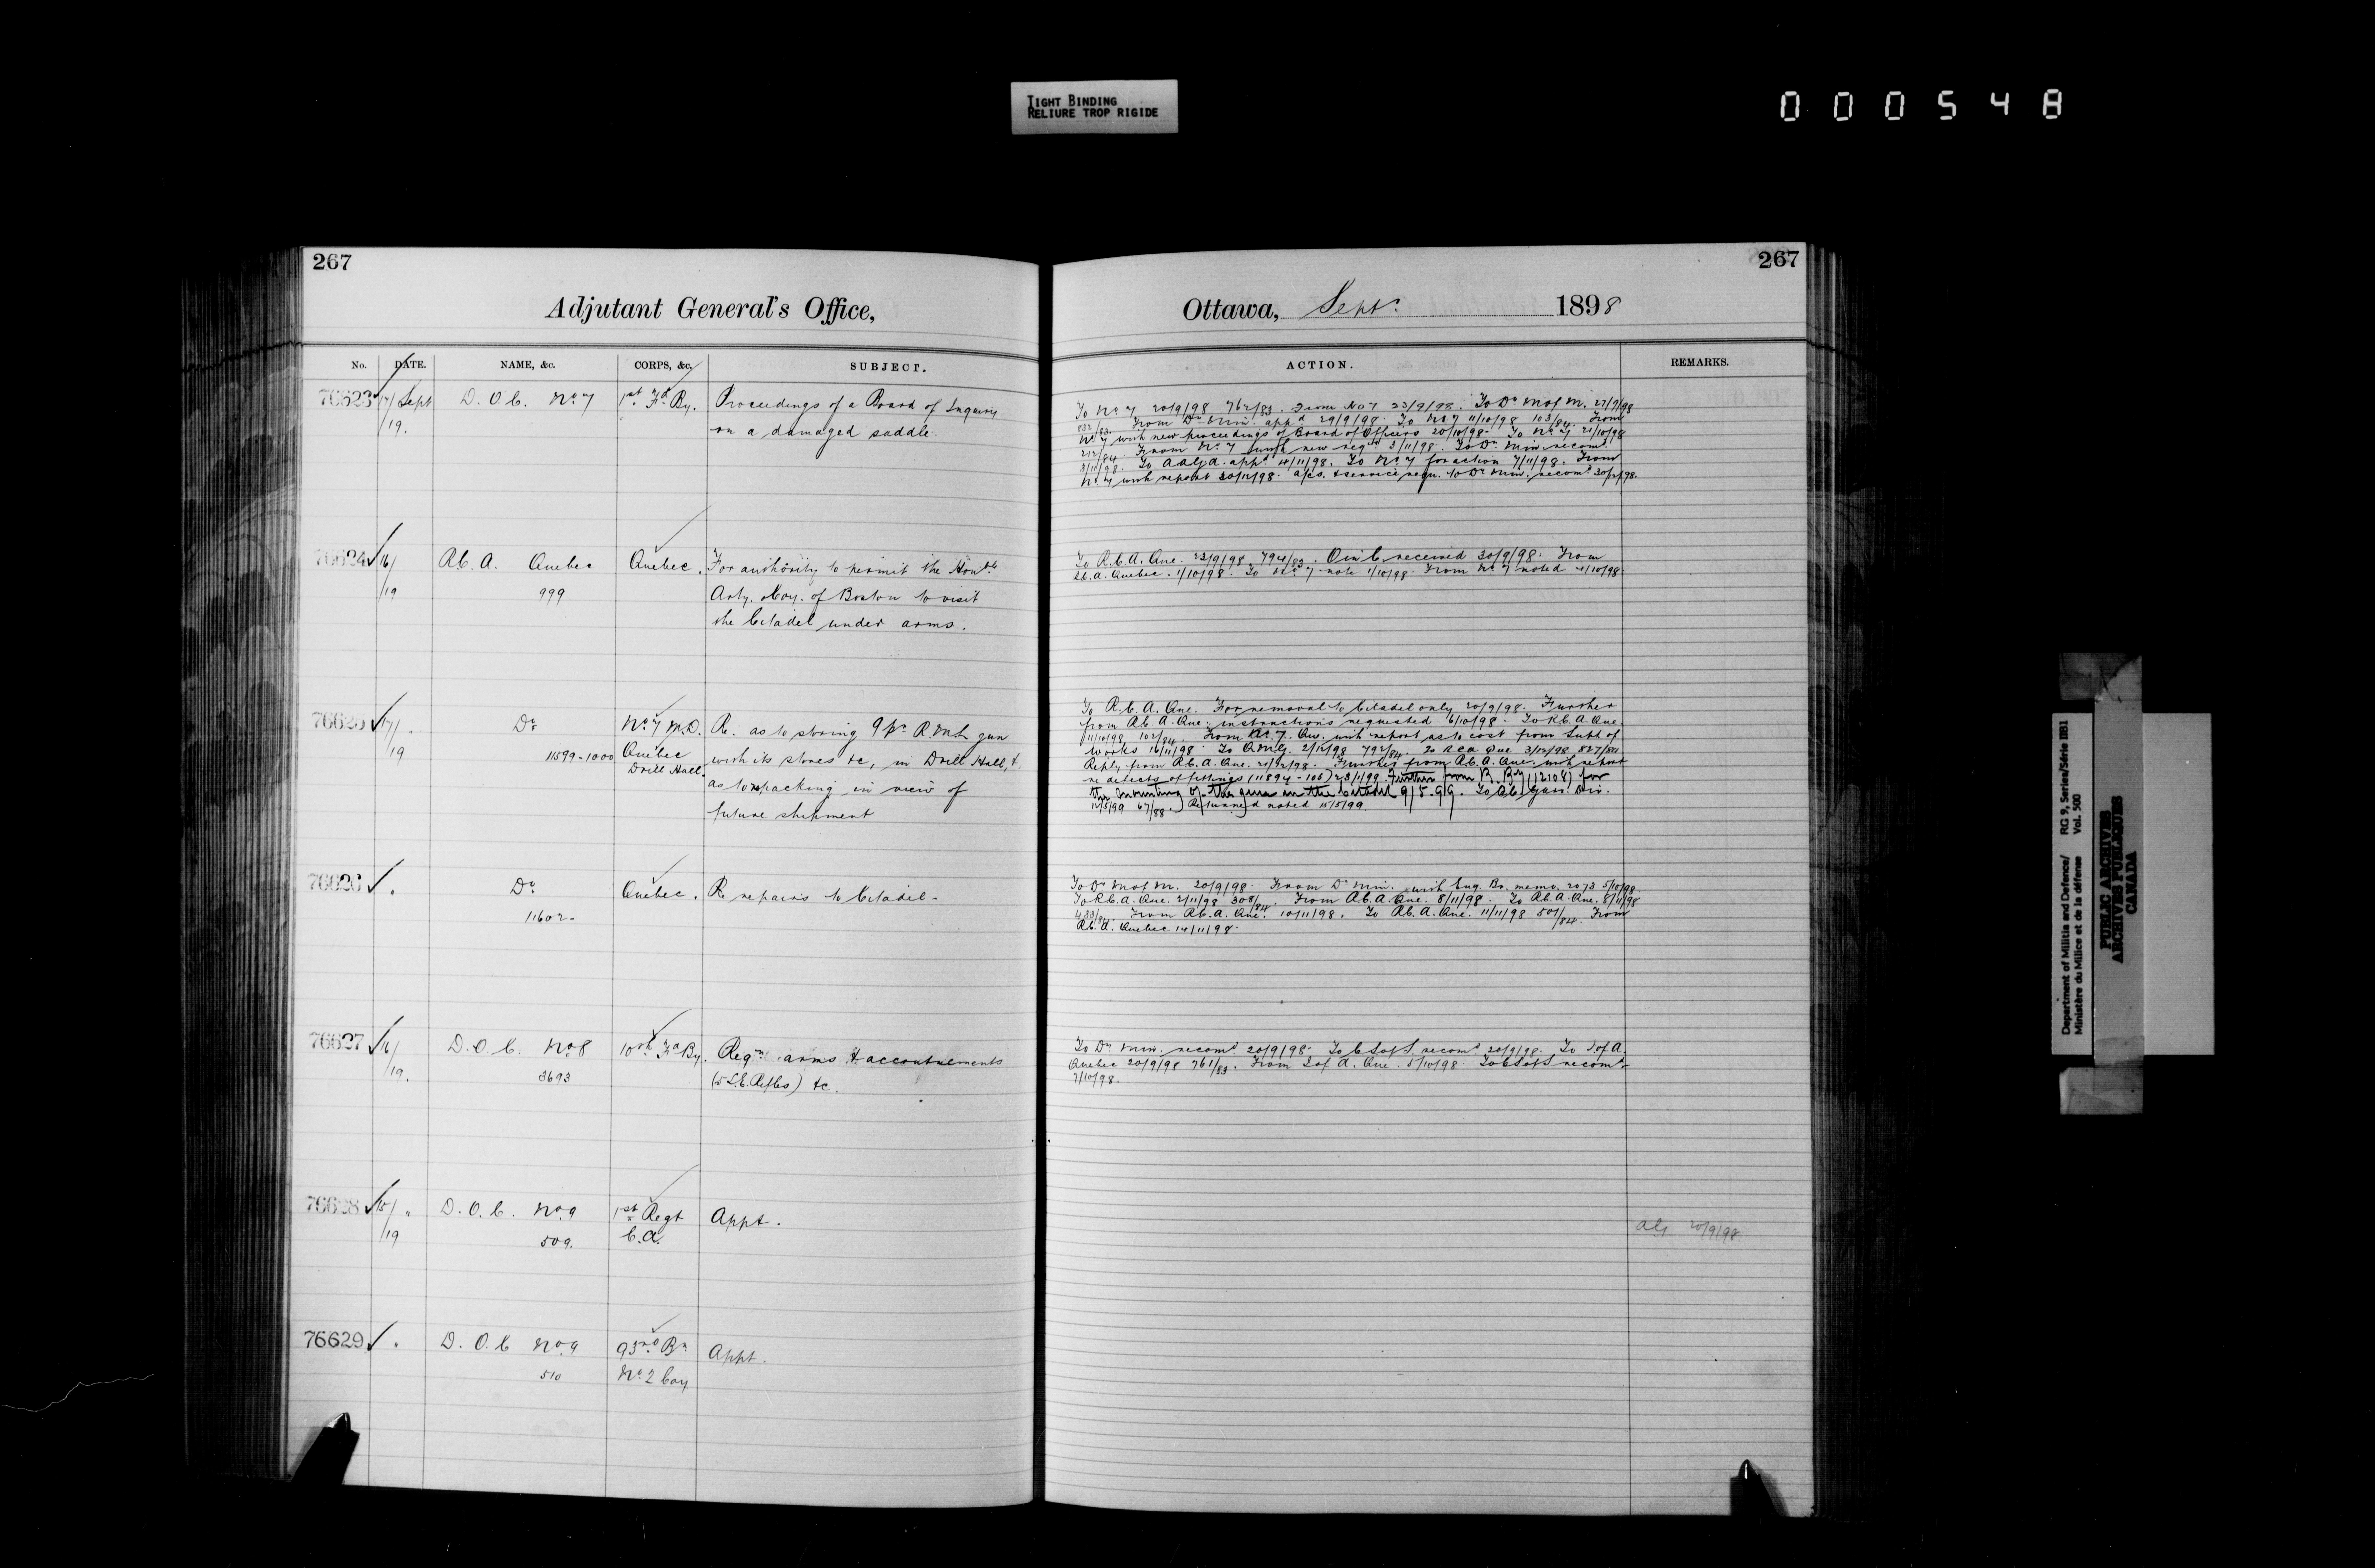 TIGHT BINDING
RELIURE TROP RIGIDE
000548
267
267
Adjutant General's Office,
Ottawa, Sept. 1898
No. DATE. NAME, &c. CORPS, &c. SUBJECT.
ACTION. REMARKS.
76623 17/ Sept D. O. C. No. 7 1st Fd By. Proceedings of a Board of Inquiry
19. on a damaged saddle.
To No 7 20/9/98 762/83. From No 7 23/9/98. To Dr M of M. 27/9/98
832/83. From Dr Min. appd 29/9/98. To No 7 11/10/98 103/84. From
No 7 with new proceedings of Board of Officers 20/10/98. To No 7 21/10/98
212/84. From No 7 with new reqn 3/11/98. To Dr Min. recomd
3/11/98. To appd 4/11/98. To No 7 for action 7/11/98. From
No 7 with report 30/12/98. requ. to Dr Min. recomd 30/12/98.
76624 16/ R.C.A. Quebec Quebec. For authority to permit the Honble
/19 999 Arty. Coy. of Boston to visit
the Citadel under arms.
To R.C.A. Que. 23/9/98 794/83. O in C. received 30/9/98. From
R.C.A. Quebec. 1/10/98. To No 7 note 1/10/98. From No 7 noted 4/10/98.
76625 17/ " Do No 7 M.D. R. as to storing 9 pr R.M.L. gun
/19 11599-1000 Quebec with its stores &c, in Drill Hall, &
Drill Hall. as to repacking in view of
future shipment
To R.C.A. Que. For removal to Citadel only 20/9/98. Further
from R.C.A. Que. instructions requested 6/10/98. To R.C.A. Que.
11/10/98 102/84. From No. 7. with report as to cost from Supt of
Works 16/11/98. To Q.M.G. 2/12/98 792/84. To RCA Que 3/12/98 827/84
Reply from R.C.A. Que. 21/12/98. Further from R.C.A. Que. with report
re defects of fittings (11894-105) 23/1/99. Further from R. (12108) for
the mounting of the gun in the Citadel 9/5.99. To Garr. Div.
12/5/99 67/88. Returned noted 15/5/99.
76626 " Do Quebec. Re repairs to Citadel-
11602-
To Dr M of M. 20/9/98. From Dr Min. with Eng. Br. memo. 2073 5/10/98.
To R.C.A. Que. 2/11/98 308/84. From R.C.A. Que. 8/11/98. To R.C.A. Que. 8/11/98
433/84. From R.C.A. Que. 10/11/98. To R.C.A. Que. 11/11/98 501/84. From
R.C.A. Quebec 14/11/98.
76627 16/ D. O. C. No. 8 10th Fd By. Reqn arms & accoutrements
/19. 3693 (5 L.E. Rifles) &c.
To Dr Min. recomd 20/9/98. To C S of S. recomd 20/9/98. To S of A.
Quebec 20/9/98 761/83. From S of A. Que. 5/10/98 To C S of S recomd
7/10/98.
76628 15/ " D. O. C. No. 9 1st Regt Appt.
/19 509. C.A.
20/9/98
76629 " D. O. C No. 9 93rd Bn Appt.
510 No. 2 Coy
Department of Militia and Defence/ RG 9, Series/Série IIB1
Ministère du Milice et de la défense Vol. 500
PUBLIC ARCHIVES
ARCHIVES PUBLIQUES
CANADA